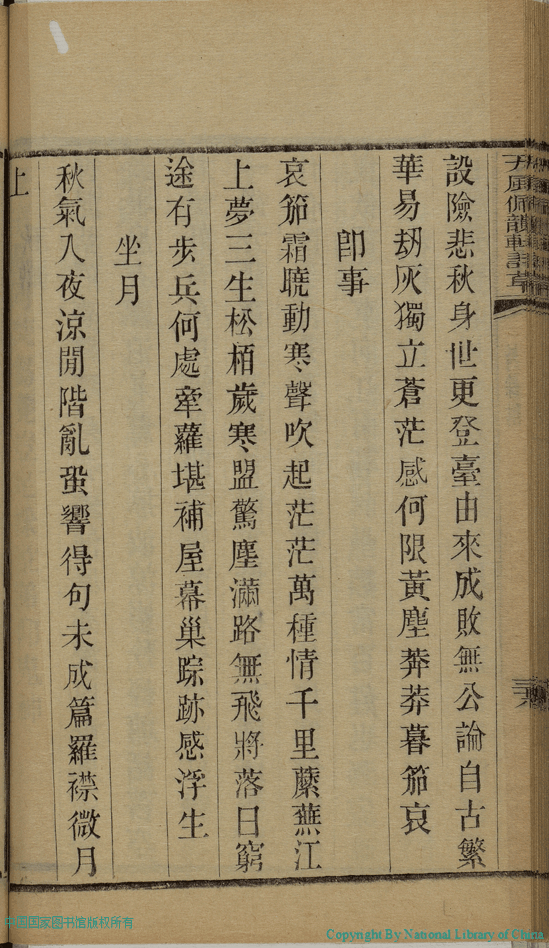 設險悲秋身世更登臺由來成敗無公論自古繁
華易刼灰獨立蒼茫感何限黃塵莽莽暮笳哀
卽事
哀笳霜曉動寒聲吹起茫茫萬種情千里蘼蕪江
上夢三生松栢歲寒盟驚塵滿路無飛將落日窮
途有步兵何處牽蘿堪補屋幕巢踪跡感浮生
坐月
秋氣入夜涼閒階亂蛩響得句未成篇羅襟微月
上
中国国家图书馆版权所有
Copyright By National Library of China